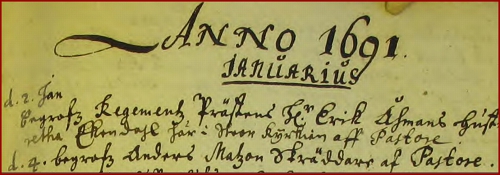 ANNO 1691
JANUARIUS
d. 2. Jan
begrofz Regementz Prästens Hr Erik Åhmans hust
retha Ekendahl här i Stoor Kyrkian aff Pastore
d. 4. begrofz Anders Matzon Skräddare af Pastore.